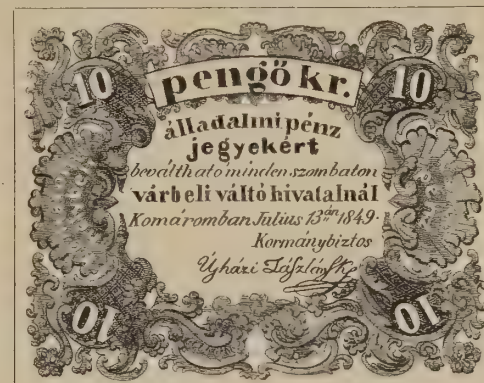 10 pengő kr. 10
álladalmi pénz
jegyekért
beváltható minden szombaton
várbeli váltó hivatalnál
Komáromban Julius 13án 1849.
Kormánybiztos
Újházi László sk
10 10